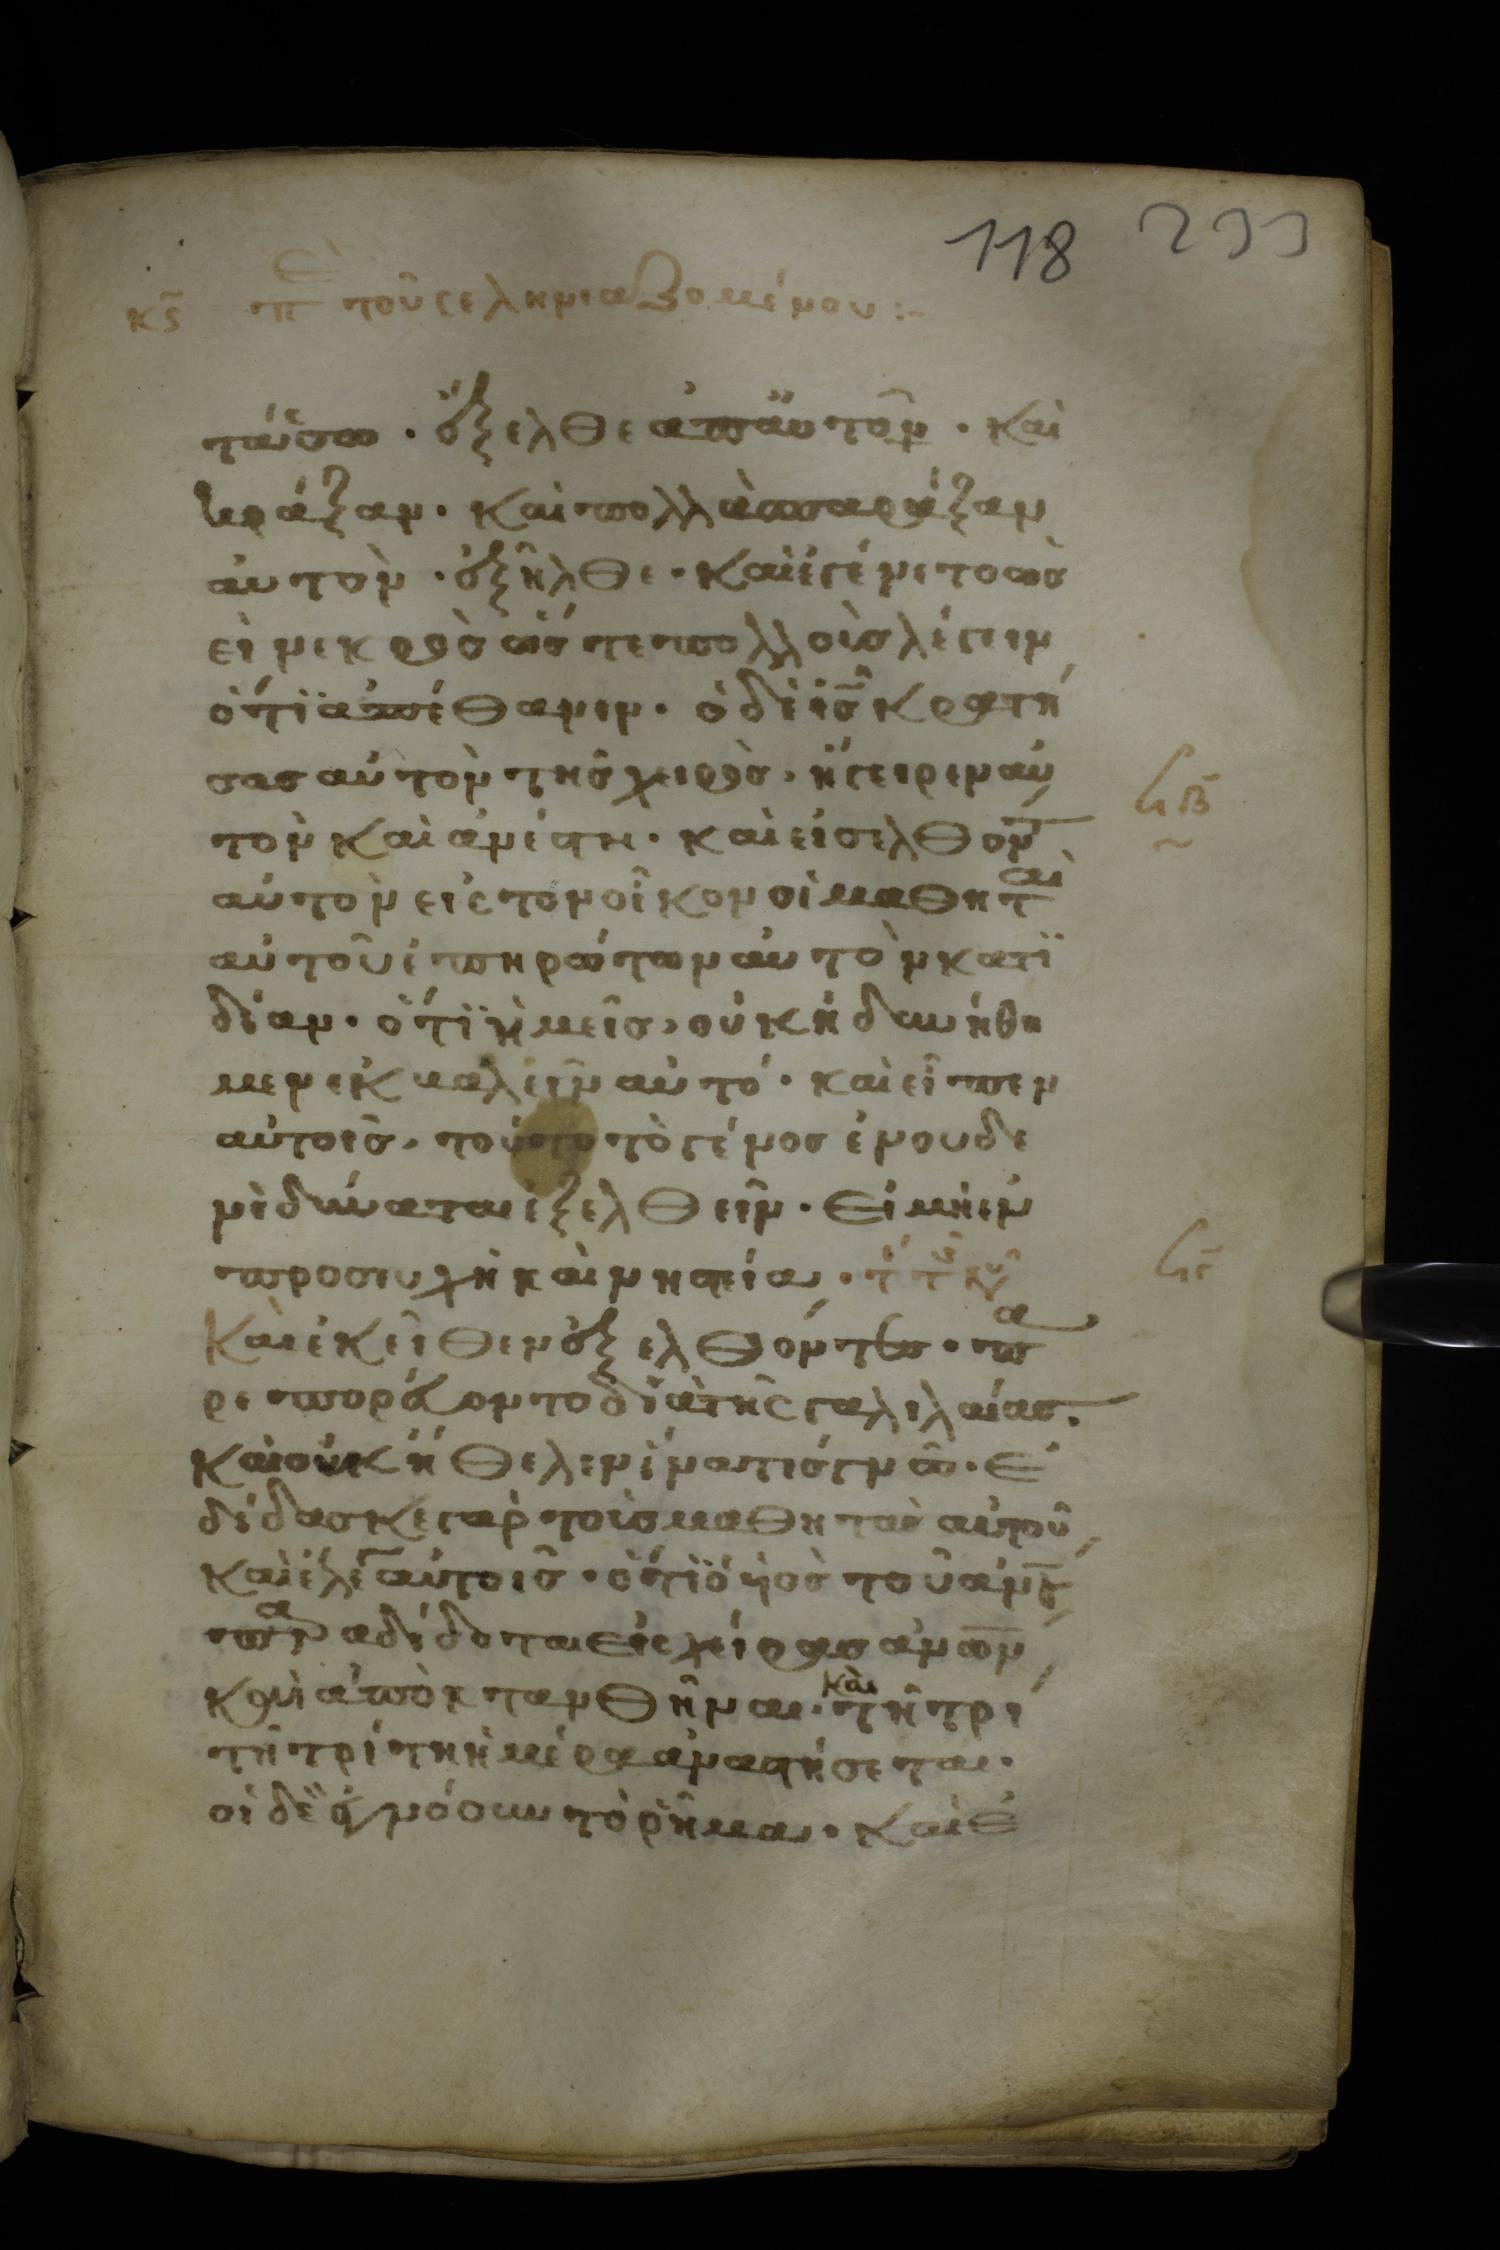 118 233
κϛ̄ πε τοῦ σεληνιαζομένου :~
τάσσω · ἔξελθε ἀπ' αὐτοῦ · Καὶ
κράξαν · καὶ πολλὰ σπαράξαν
αὐτὸν · ἐξῆλθε · Καὶ ἐγένετο ὡσ
εὶ νεκρὸσ ὥστε πολλοὺσ λέγειν
ὅτι ἀπέθανεν · ὁ δὲ ι̅σ̅ κρατή
σασ αὐτὸν τῆσ χειρὸσ · ἤγειρεν αὐ
τὸν καὶ ἀνέστη · καὶ εἰσελθόντ
αὐτὸν εἰσ τὸν οἶκον οἱ μαθηταὶ
αὐτοῦ ἐπηρώτων αὐτὸν κατϊ
δίαν · ὅτϊ ἡμεῖσ, οὐκ ἠδυνήθη
μεν ἐκβαλεῖν αὐτό · καὶ εἶπεν
αὐτοῖσ, τοῦτο τὸ γένοσ ἐν οὐδε
νὶ δύναται ἐξελθεῖν · Εἰ μὴ ἐν
προσευχῆ καὶ νηστεία ·
Καὶ ἐκεῖθεν ἐξελθόντεσ · πα
ρεπορεύοντο διὰ τῆσ γαλιλαίασ ·
καὶ οὐκ ἤθελεν ἵνα τισ γνῶ · Ἐ
δίδασκε γὰρ τοὺσ μαθητὰσ αὐτοῦ
καὶ ἔλεγ αὐτοῖσ · ὅτϊ ὁ ὑιὸσ τοῦ ἀν̅ου̅
παραδίδοται εἰσ χείρασ ἀν̅ων̅
καὶ ἀποκτανθῆναι · καὶ τῆ τρι
τῆ τρίτη ἡμέρα ἀναστήσεται ·
οἱ δὲ ἠγνόουν τὸ ῥῆμα · καὶ ἐ